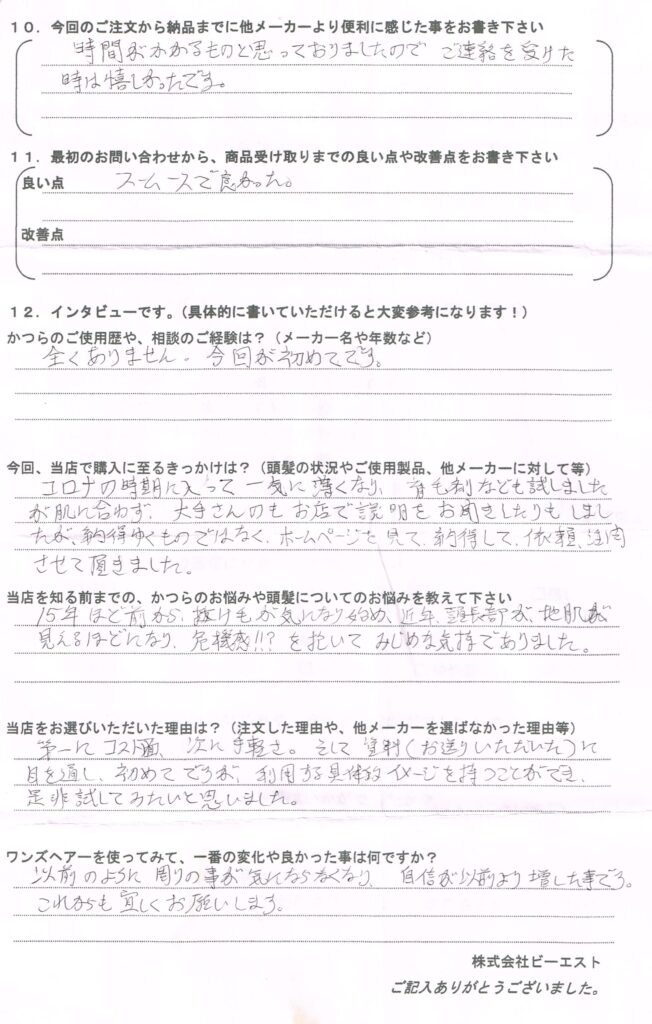 １０．今回のご注文から納品までに他メーカーより便利に感じた事をお書き下さい
時間がかかるものと思っておりましたので ご連絡を受けた
時は嬉しかったです。
１１．最初のお問い合わせから、商品受け取りまでの良い点や改善点をお書き下さい
良い点 スームースで良かった。
改善点
１２．インタビューです。（具体的に書いていただけると大変参考になります！）
かつらのご使用歴や、相談のご経験は？（メーカー名や年数など）
全くありません。今回が初めてです。
今回、当店で購入に至るきっかけは？（頭髪の状況やご使用製品、他メーカーに対して等）
コロナの時期に入って一気に薄くなり、育毛剤なども試しました
が肌に合わず、大手さんのもお店で説明をお聞きしたりもしまし
たが、納得ゆくものではなく、ホームページを見て、納得して、依頼、注肉
させて頂きました。
当店を知る前までの、かつらのお悩みや頭髪についてのお悩みを教えて下さい
15年ほど前から、抜け毛が気になり始め、近年、頭長部が、地肌が
見えるほどになり、危機感!!?を抱いてみじめな気持でありました。
当店をお選びいただいた理由は？（注文した理由や、他メーカーを選ばなかった理由等）
第一に コスト面、次に手軽さ。そして資料（お送りいただいた）に
目を通し、初めてですが、利用する具体的イメージを持つことができ、
是非試してみたいと思いました。
ワンズヘアーを使ってみて、一番の変化や良かった事は何ですか？
以前のように周りの事が気にならなくなり、自信が以前より増した事です。
これからも宜しくお願いします。
株式会社ビーエスト
ご記入ありがとうございました。